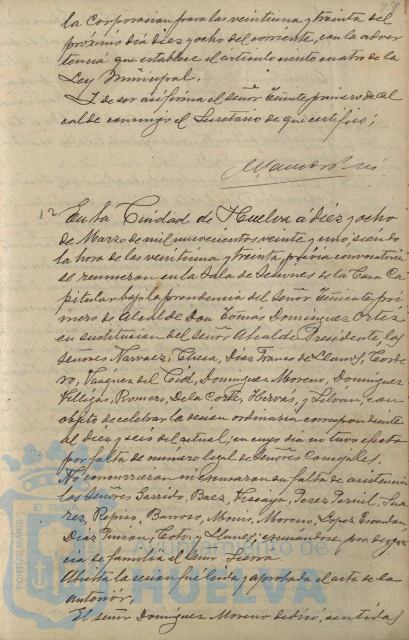 la Corporación para las veintiuna y treinta del
próximo día diez y ocho del corriente, con la adver
tencia que establece el artículo ciento cuatro de la
Ley Municipal.
Y de ser así firma el señor Teniente primero de Al
calde conmigo el Secretario de que certifico;
12 En la Ciudad de Huelva a diez y ocho
de Marzo de mil novecientos veinte y uno, siendo
la hora de las veintiuna y treinta, previa convocatoria
se reunieron en la Sala de Sesiones de la Casa Ca
pitular bajo la presidencia del Señor Teniente pri
mero de Alcalde Don Tomás Domínguez Ortiz
en sustitución del señor Alcalde Presidente, los
señores Narvaez, Checa, Díaz Franco de Llanos, Corde
ro, Vazquez del Cid, Domínguez Moreno, Domínguez
Villegas, Romero, De la Corte, Hervas, y Silván, con
objeto de celebrar la sesión ordinaria correspondiente
al diez y seis del actual, en cuyo día no tuvo efecto
por falta de número legal de Señores Concejales.
No concurrieron ni excusaron su falta de asistencia
los Señores Garrido, Baez, Vizcaya, Perez Pernil, Sua
rez, Repiso, Barroso, Moreno, Lopez
Díaz Pinzon, Coto, y Llanes, excusandose por desgra
cia de familia el Señor Sierra.
Abierta la sesión fué leída y aprobada el acta de la
anterior.
El señor Domínguez Moreno dedicó, sentidas
ET TERRAE
PORTUS MARIS
Ayuntamiento de
HUELVA